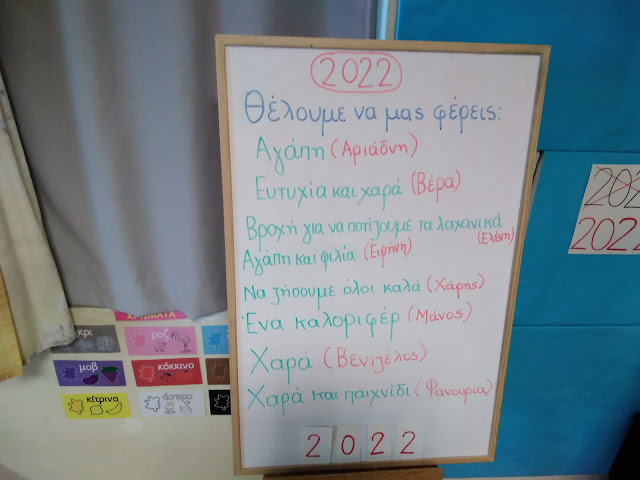 2022
Θέλουμε να μας φέρεις:
Αγάπη (Αριάδνη)
Ευτυχία και χαρά (Βέρα)
Βροχή για να ποτίζουμε τα λαχανικά
(Ελένη)
Αγάπη και φιλία (Ειρήνη)
Να ζήσουμε όλοι καλά (Χάρης)
Ένα καλοριφέρ (Μάνος)
Χαρά (Βενιζέλος)
Χαρά και παιχνίδι (Φανουρία)
2022
202
2022
ΧΡΩΜΑΤΑ
κρι
ροζ
μοβ
κόκκινο
κίτρινο
άσπρο